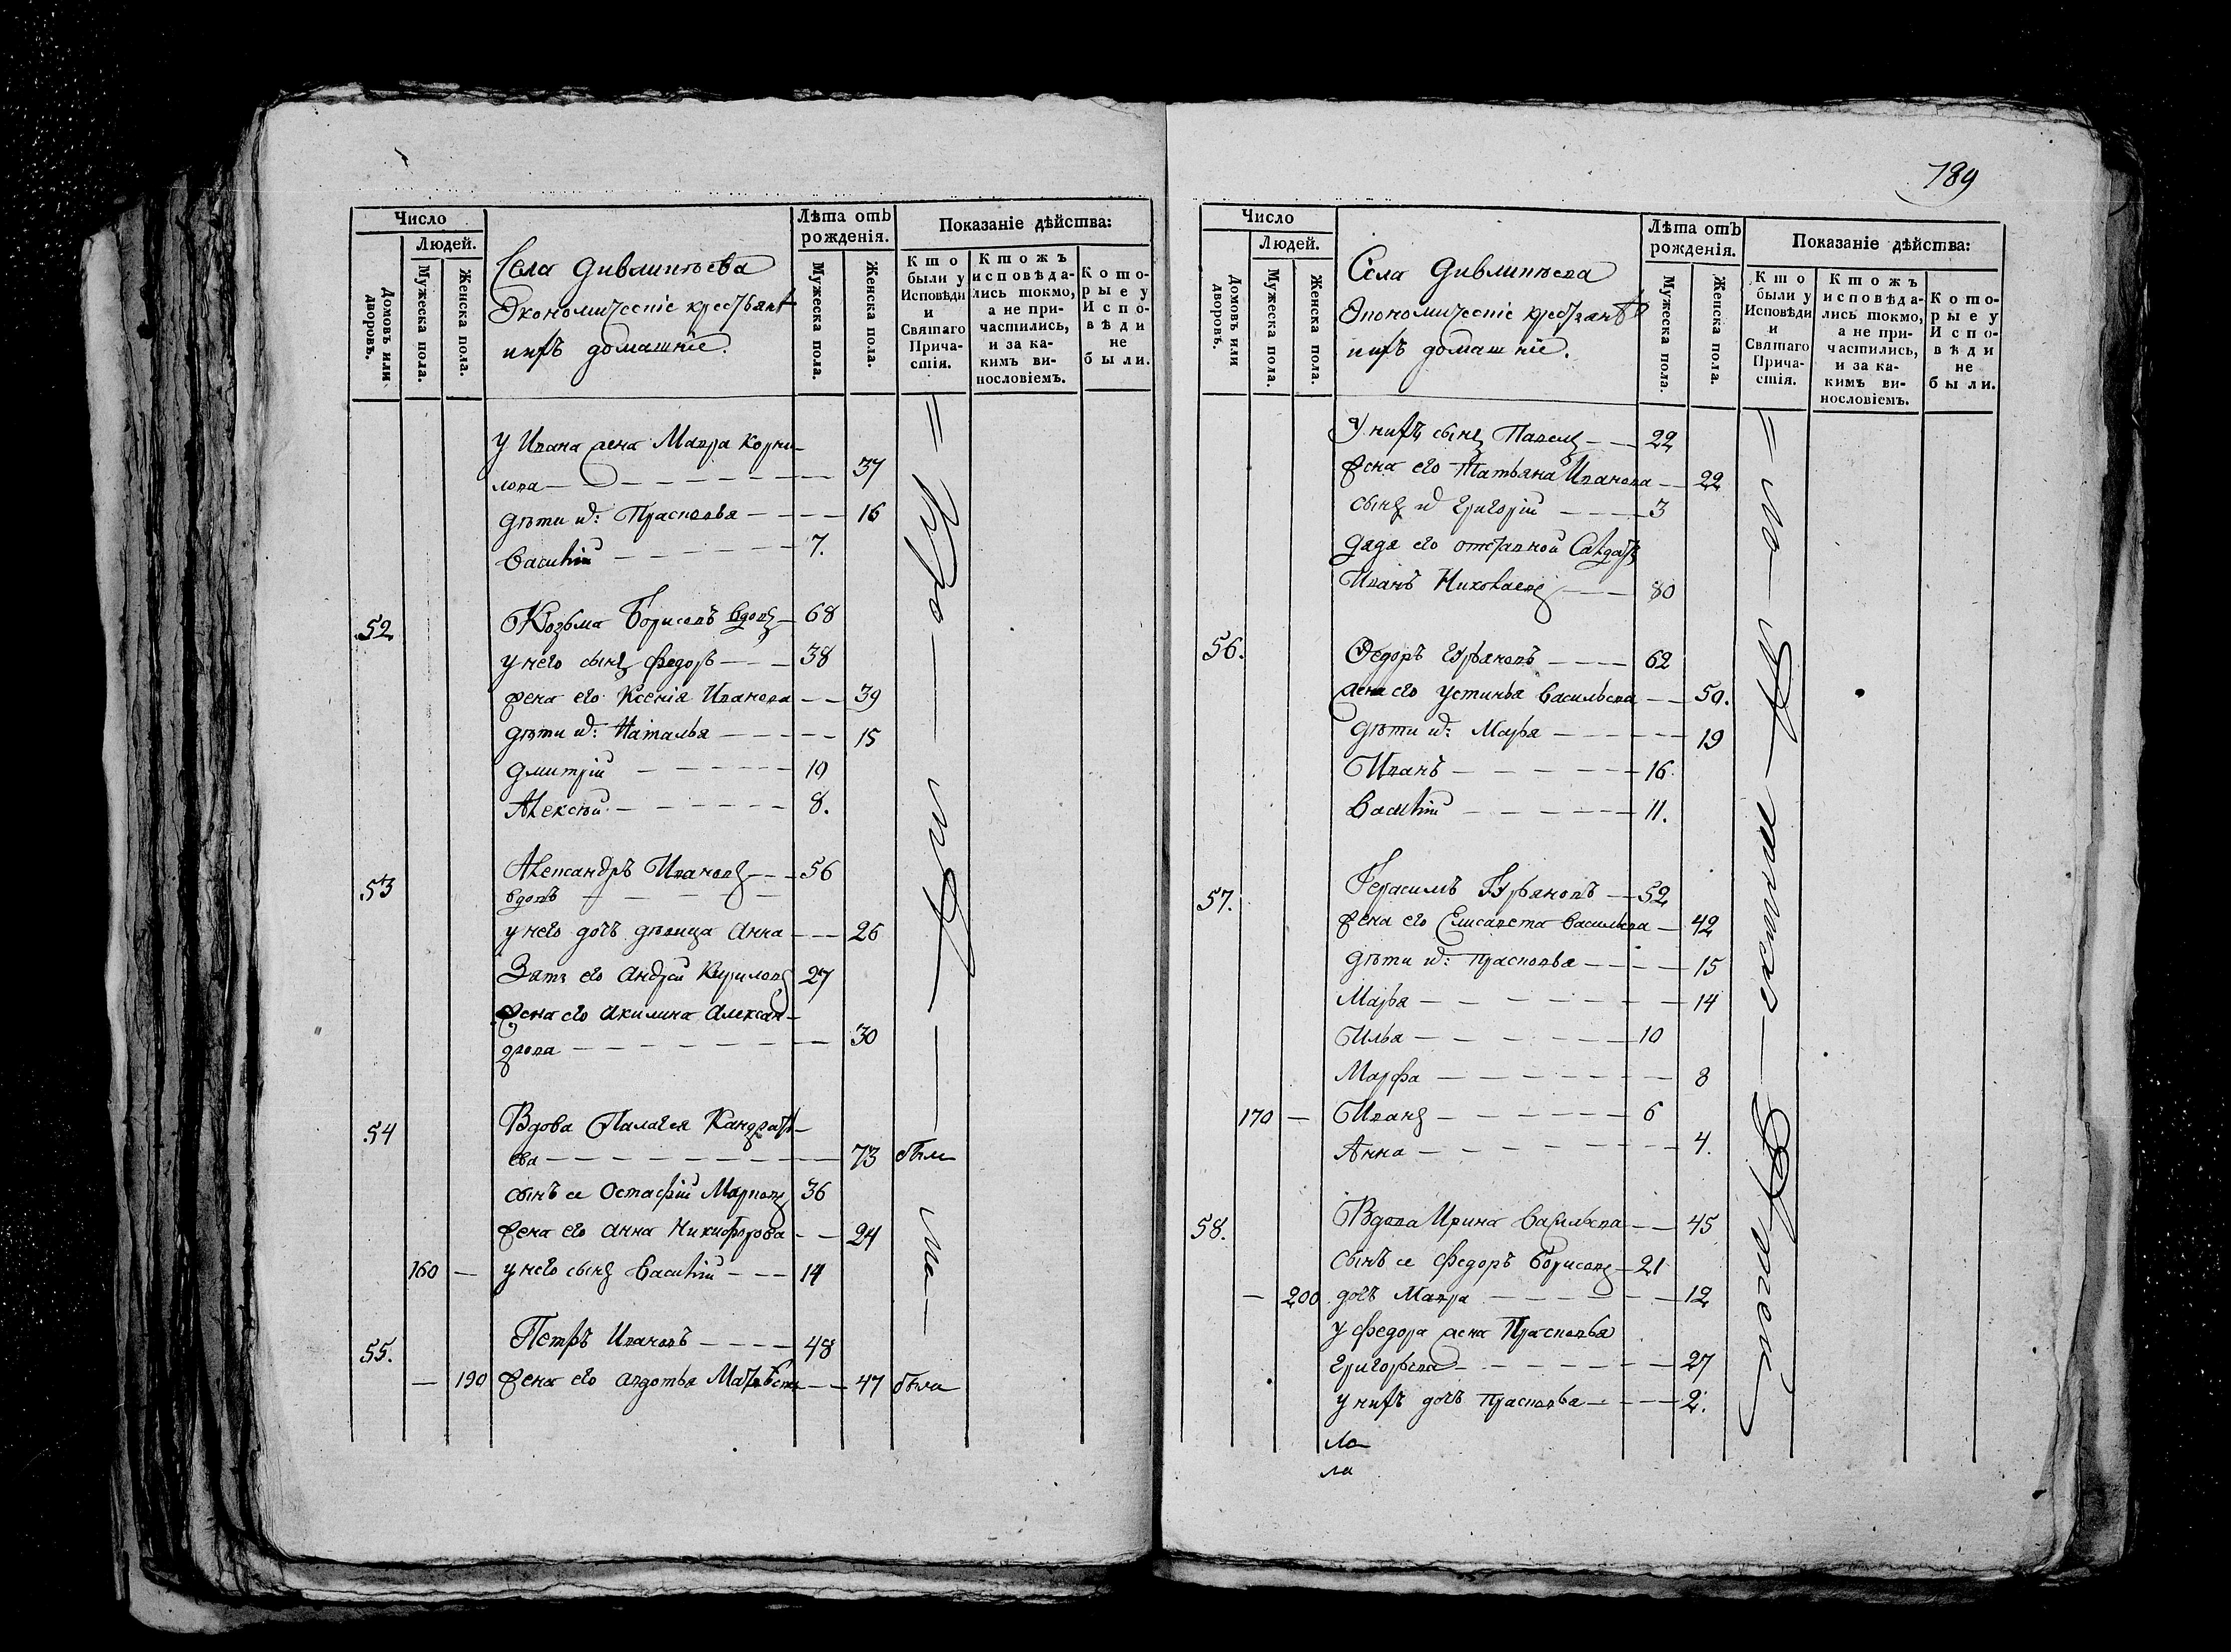 Число
Людей.
Домовъ или дворовъ.
Мужеска пола.
Женска пола.
Села Дивлинѣева
Экономическіе крестьяне
ихъ домашніе.
Лѣта отъ рожденія.
Мужеска пола.
Женска пола.
Показаніе дѣйства:
Кто были у Исповѣди и Святаго Причастія.
Ктожъ исповѣдались токмо, а не причастились, и за какимъ винословіемъ.
Которые у Исповѣди не были.
У Ивана жена Мавра Корни-
лова 37
дѣти их: Прасковья 16
Василій 7.
52 Козьма Борисовъ вдовъ 68
у него сынъ Федоръ 38
жена его Ксенія Иванова 39
дѣти их: Наталья 15
Дмитрій 10
Алексѣй 8.
53 Александръ Ивановъ 56
вдовъ
у него дочь девица Анна 26
Зять его Андрей Кириловъ 27
жена его Акилина Алексан-
дрова 30
54 Вдова Палагея Кандрать-
ева 73 были
сынъ ее Остафій Марковъ 36
жена его Анна Никифорова 24
160 — у него сынъ Василій 14
55. Петръ Ивановъ 48
— 190 жена его Авдотья Матвѣева 47 были
189
Число
Людей.
Домовъ или дворовъ.
Мужеска пола.
Женска пола.
Села Дивлинѣева
Экономическіе крестьяне
ихъ домашніе.
Лѣта отъ рожденія.
Мужеска пола.
Женска пола.
Показаніе дѣйства:
Кто были у Исповѣди и Святаго Причастія.
Ктожъ исповѣдались токмо, а не причастились, и за какимъ винословіемъ.
Которые у Исповѣди не были.
У нихъ сынъ Павелъ 22
жена его Татьяна Иванова 22
сынъ их Григорій 3
дядя его отставной Салдатъ
Иванъ Николаевъ 80
56. Федоръ Гурьяновъ 62
жена его Устинья Васильева 50.
дѣти их: Марья 19
Иванъ 16
Василій 11.
57. Герасимъ Гурьяновъ 52
жена его Елисавета Васильева 42
дѣти их: Прасковья 15
Марья 14
Илья 10
Марфа 8
170 — Иванъ 6
Анна 4.
58. Вдова Ирина Васильева 45
сынъ ее Федоръ Борисовъ 21
— 200 дочь Мавра 12
у Федора жена Прасковья
Григорьева 27
у нихъ дочь Прасковья 2.
ла
ла